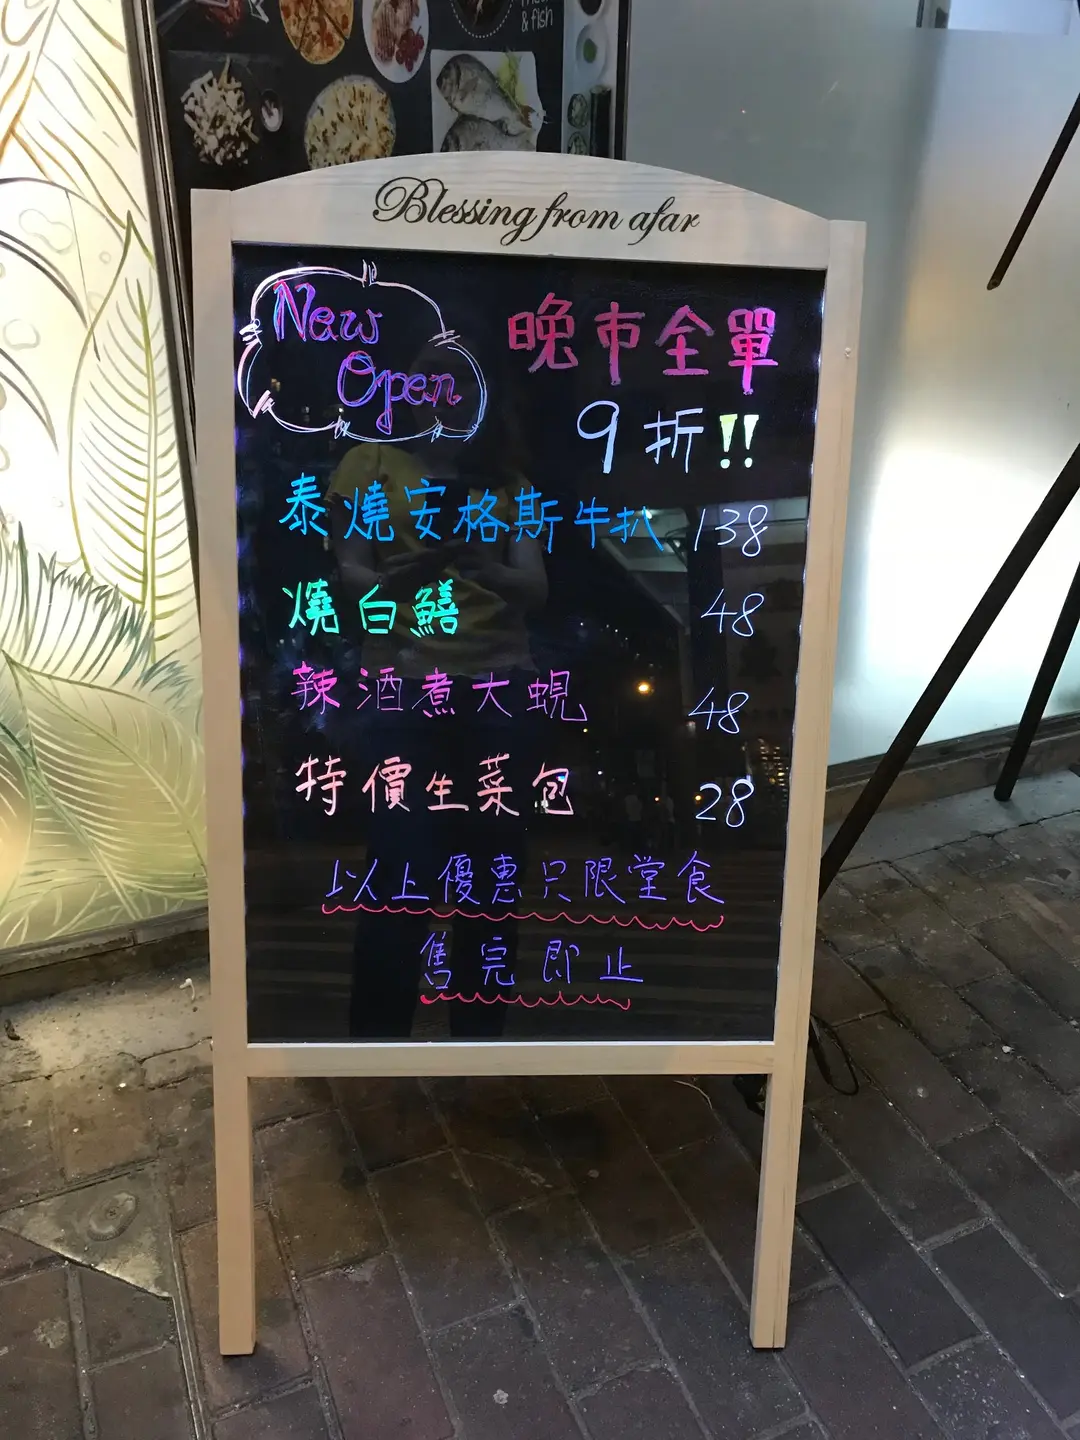 & fish
Blessing from afar
New
Open
晚市全單
9折!!
泰燒安格斯牛扒 138
燒白鱔 48
辣酒煮大蜆 48
特價生菜包 28
以上優惠只限堂食
售完即止